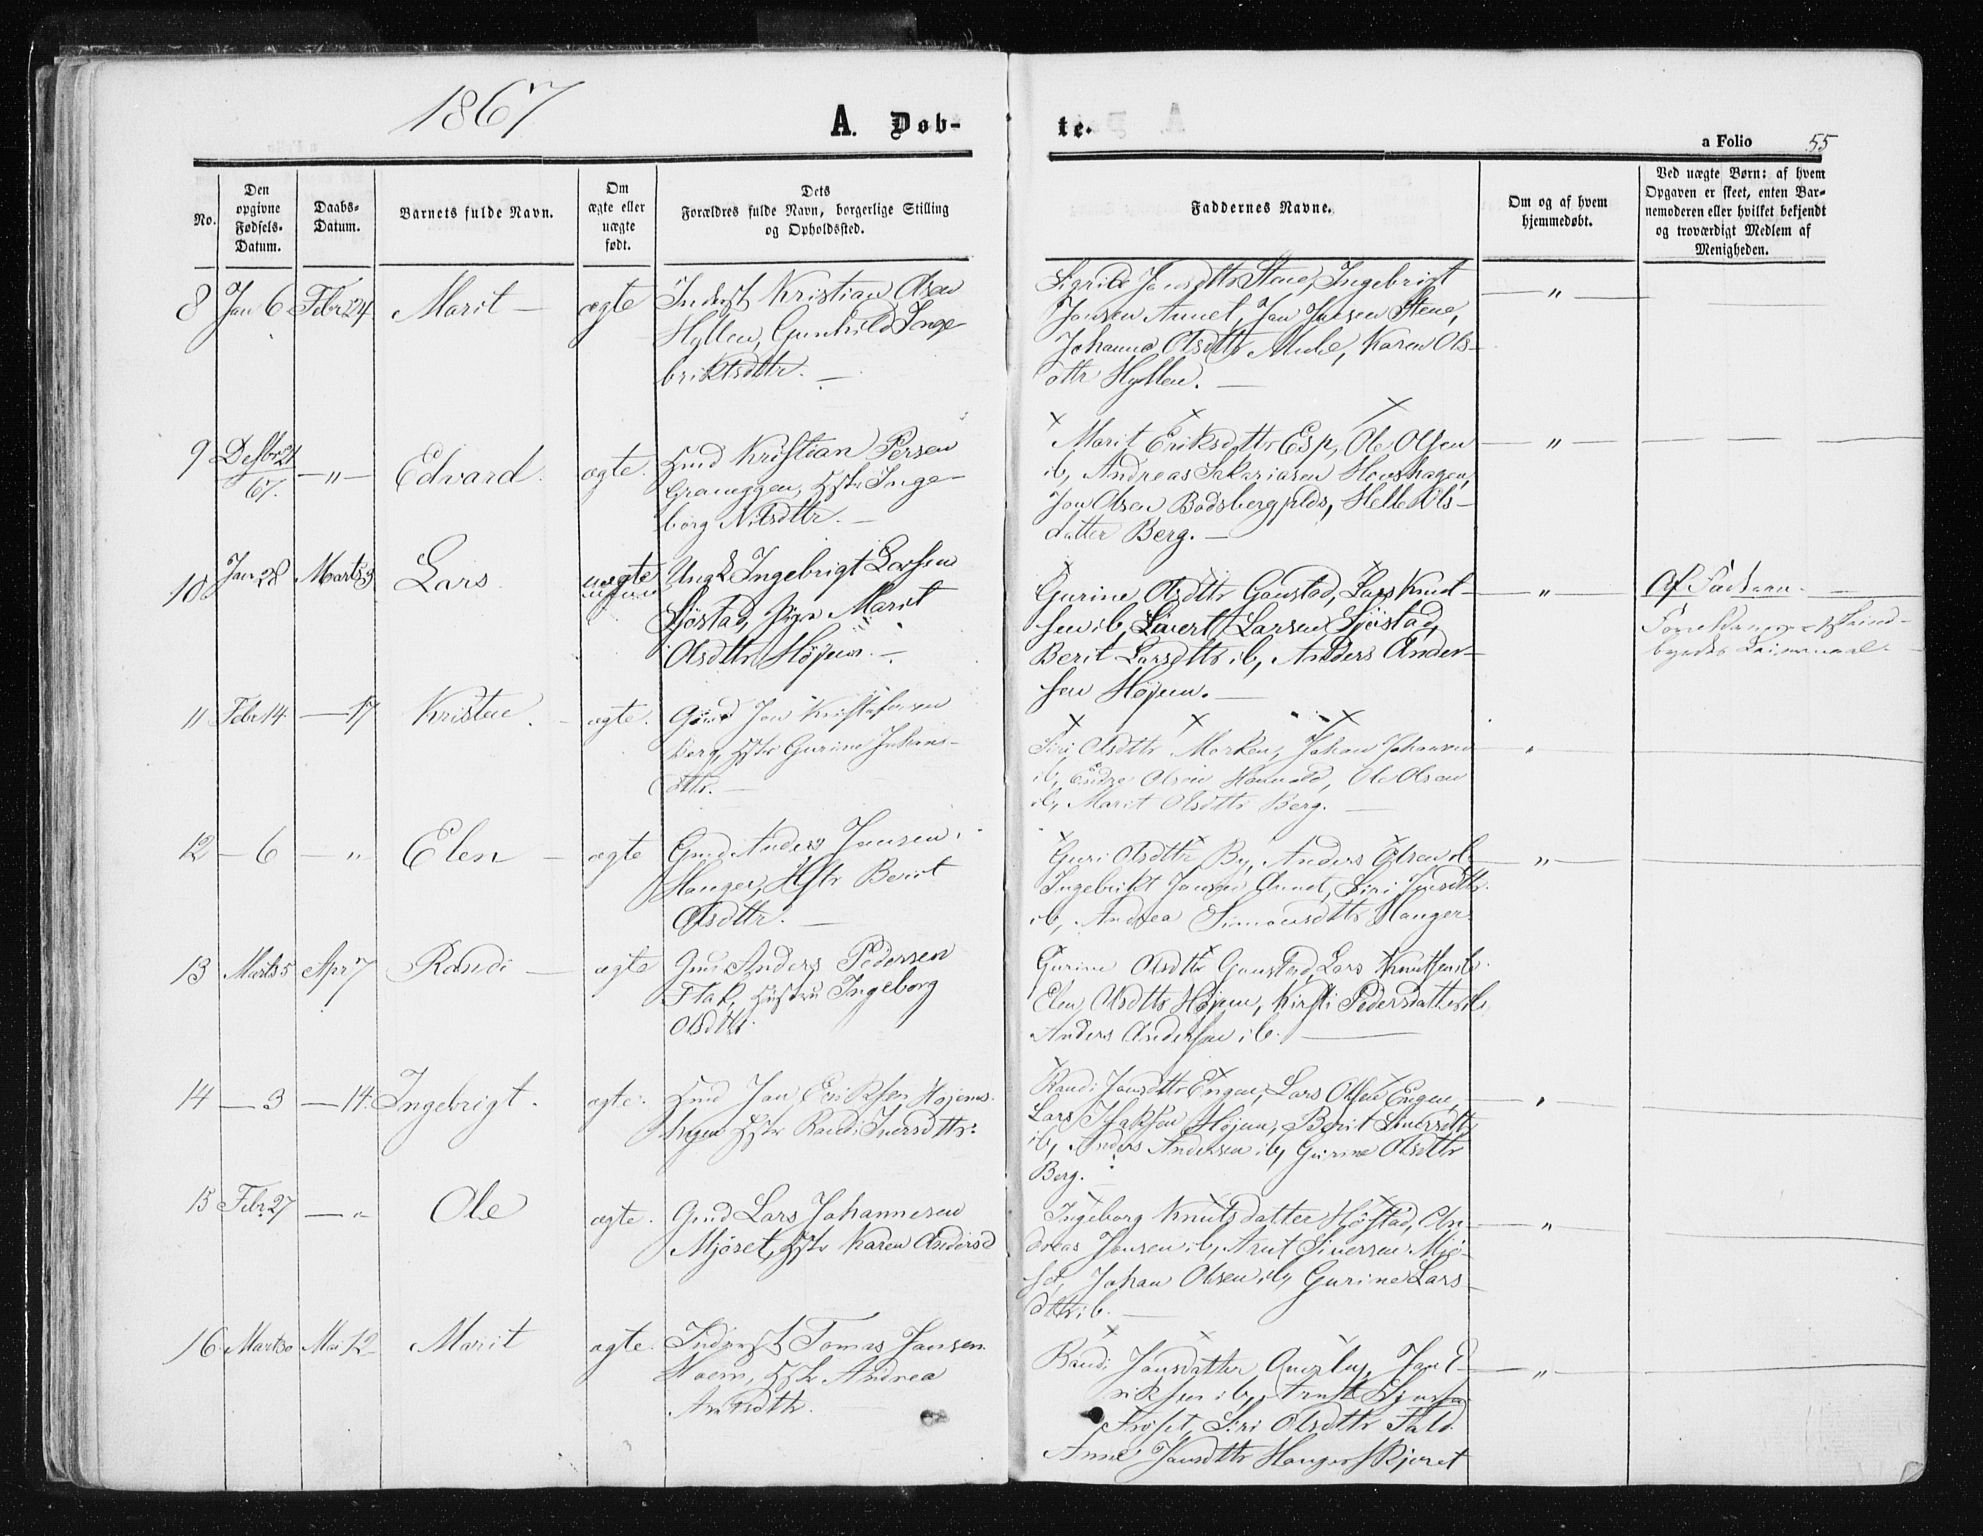 1867
A. Døb-
te.
a Folio 55
No.
Den opgivne Fødsels-Datum.
Daabs-Datum.
Barnets fulde Navn.
Om ægte eller uægte født.
Dets Forældres fulde Navn, borgerlige Stilling og Opholdssted.
Faddernes Navne.
Om og af hvem hjemmedøbt.
Ved uægte Børn: af hvem Opgaven er skeet, enten Barnemoderen eller hvilket bekjendt og troværdigt Medlem af Menigheden.
8 Jan 6 Febr 24 Marit — ægte Inderst Kristian Olsen
Hyllen, Gunhild Inge
briktsdttr. —
Sigrid Jonsdttr Stene, Ingebrigt
Jonsen Aunet, Jon Jonsen Stene,
Johanna Olsdttr, Karen Ols-
dttr Hyllen. —
— " —
9 Desbr 21 — " — Edvard. ægte. Hmd Kristian Persen
67.
Hstr Inge-
borg Nilsdttr. —
Marit Eriksdattr Esp, Ole Olsen
ib, Andreas Sakariasen
Jon Olsen Bodsbergplds, Ols-
datter Berg. —
— " —
10 Jan 28 Marts 3 Lars uægte Ungk Ingebrigt Larsen
Sjøstad, Pige Marit
Olsdttr Højem. —
Gurine Olsdttr Gaustad, Lars Knud-
sen ib, Sivert Larsen Sjøstad,
Berit Larsdttr ib, Anders Ander-
sen Højem. —
— " —
Af Faderen. —
11 Febr 14 — 17 Kristen. — ægte. Gmd Jon Kristofersen
Berg, Hstr Gurine Johans-
dttr. —
Siri Olsdttr Morken, Johan Johansen
ib, Endre Olsen, Ole Olsen
ib, Marit Olsdttr Berg. —
"
12 — 6 — " Elen — ægte Gmd Anders Jonsen
Hanger, Hstr Berit
Olsdttr. —
Guri Olsdttr By, Anders Olsen ib
Ingebrikt Jonsen Aunet, Siri Jonsdttr
ib, Andrea Simonsdttr Hanger
— " —
13 Marts 5 Apr 7 Randi — ægte Gmd Anders Pedersen
Flak, Hustru Ingeborg
Olsdttr.
Gurine Olsdttr Gaustad, Lars Knutsen ib.
Elen Olsdttr Højem, Kirsti Pedersdatter ib
Anders Andersen ib. —
14 — 3 — 14. Ingebrigt. ægte. Hmd Jon Eriksen Højems-
Hstr Randi Iversdttr.
Randi Jonsdttr Engen, Lars Olsen Engen,
Lars Isaksen Højem, Berit Siversdttr
ib, Anders Andersen ib, Gurine Olsdttr
Berg.
15 Febr. 27 — " Ole ægte. Gmd Lars Johannesen
Mjøset, Hstr Karen Andersd
Ingeborg Knutsdatter Høstad, An-
dreas Jonsen ib, Arnt Siversen Mjø-
set, Johan Olsen ib, Gurine Lars-
dttr ib. —
— " —
16 Marts 30 Mai 12 Marit ægte. Inderst Tomas Jonsen
Moem, Hstr Andrea
Arntsdttr.
Randi Jonsdatter Qverby, Jon E-
riksen ib, Arnt
Frøset, Siri Olsdttr Fald
Anne Jonsdttr Hanger
— " —